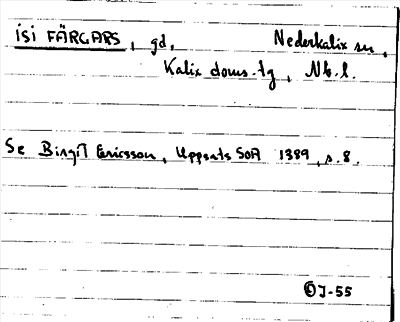 ISI FÄRGARS, gd. Nederkalix sn,
Kalix doms.tg, Nb.l.
Se Birgit Ericsson, Uppsats SOA 1389, s.8.
J-55